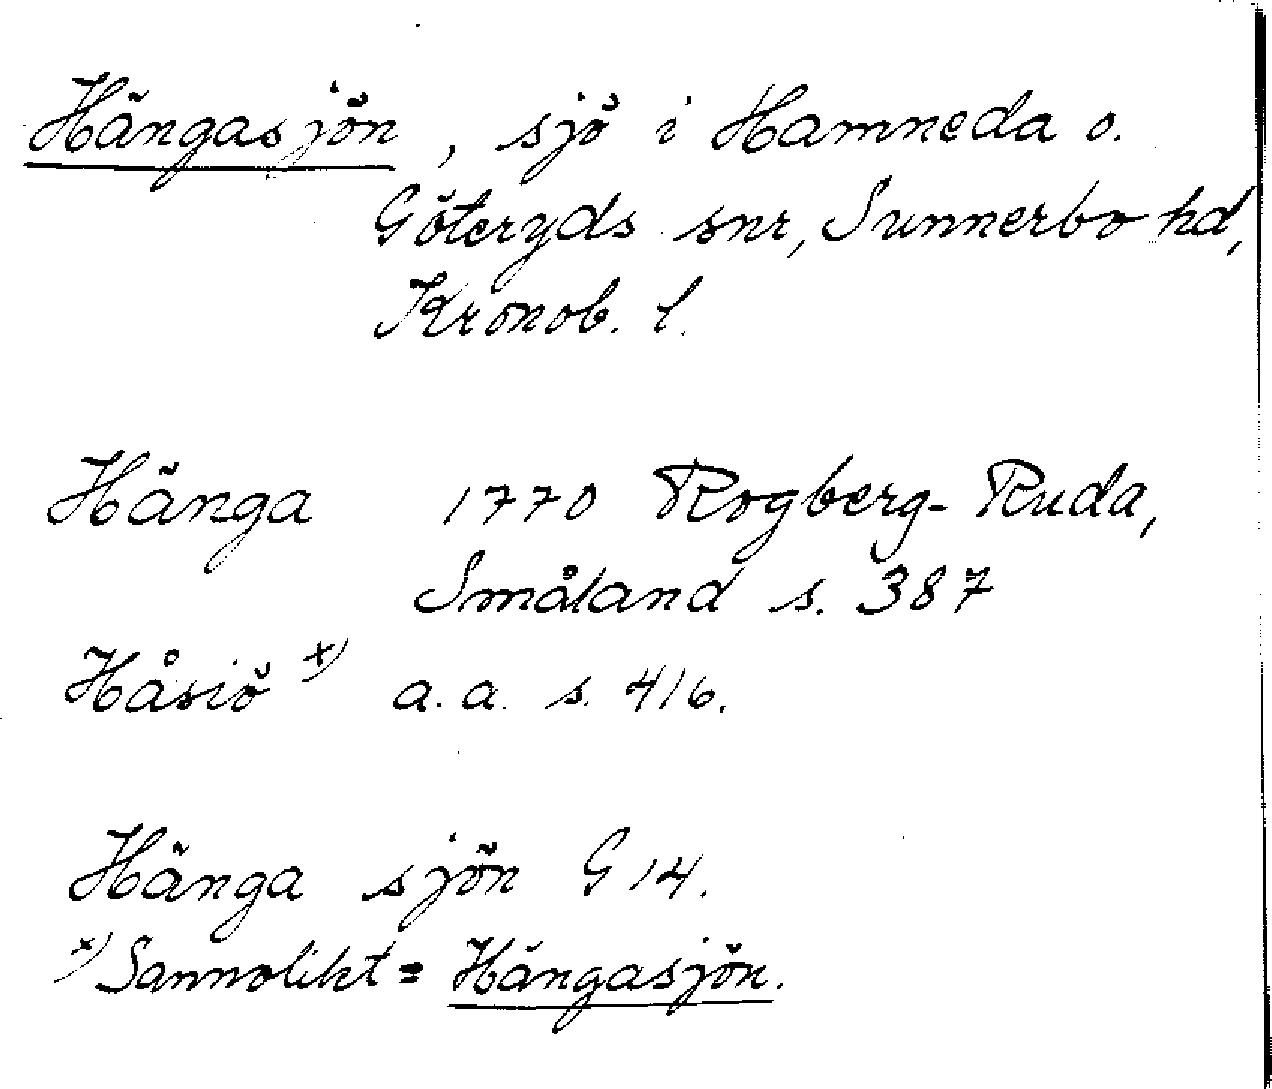 Hängasjön, sjö i Hamneda o.
Göteryds snr, Sunnerbo hd,
Kronob. l.
Hänga 1770 Rogberg-Ruda,
Småland s. 387
Håsiö x) a. a. s. 416.
Hänga sjön G 14.
x) Sannolikt = Hängasjön.